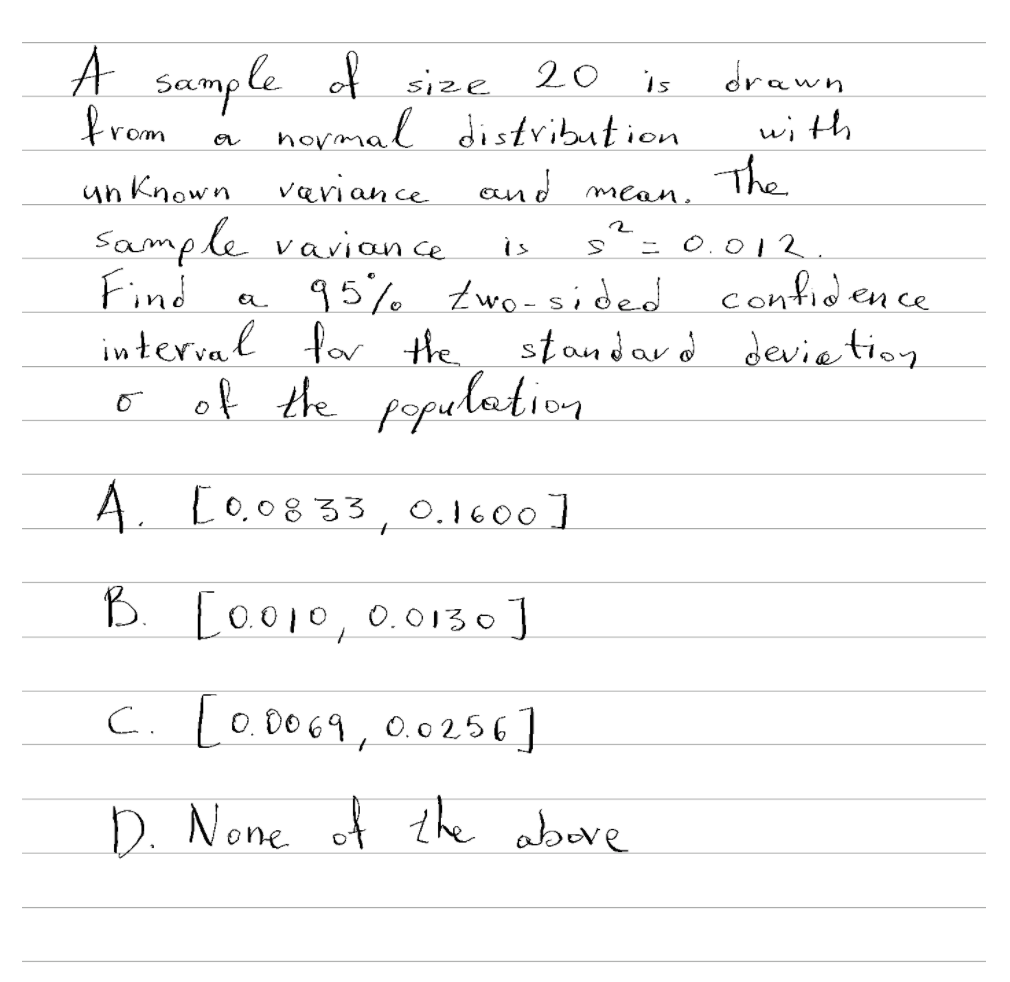 A sample of size 20 is drawn
from a normal distribution with
unknown variance and mean. The
sample variance is s² = 0.012.
Find a 95% two-sided confidence
interval for the standard deviation
σ of the population
A. [0.0833, 0.1600]
B. [0.010, 0.0130]
C. [0.0069, 0.0256]
D. None of the above